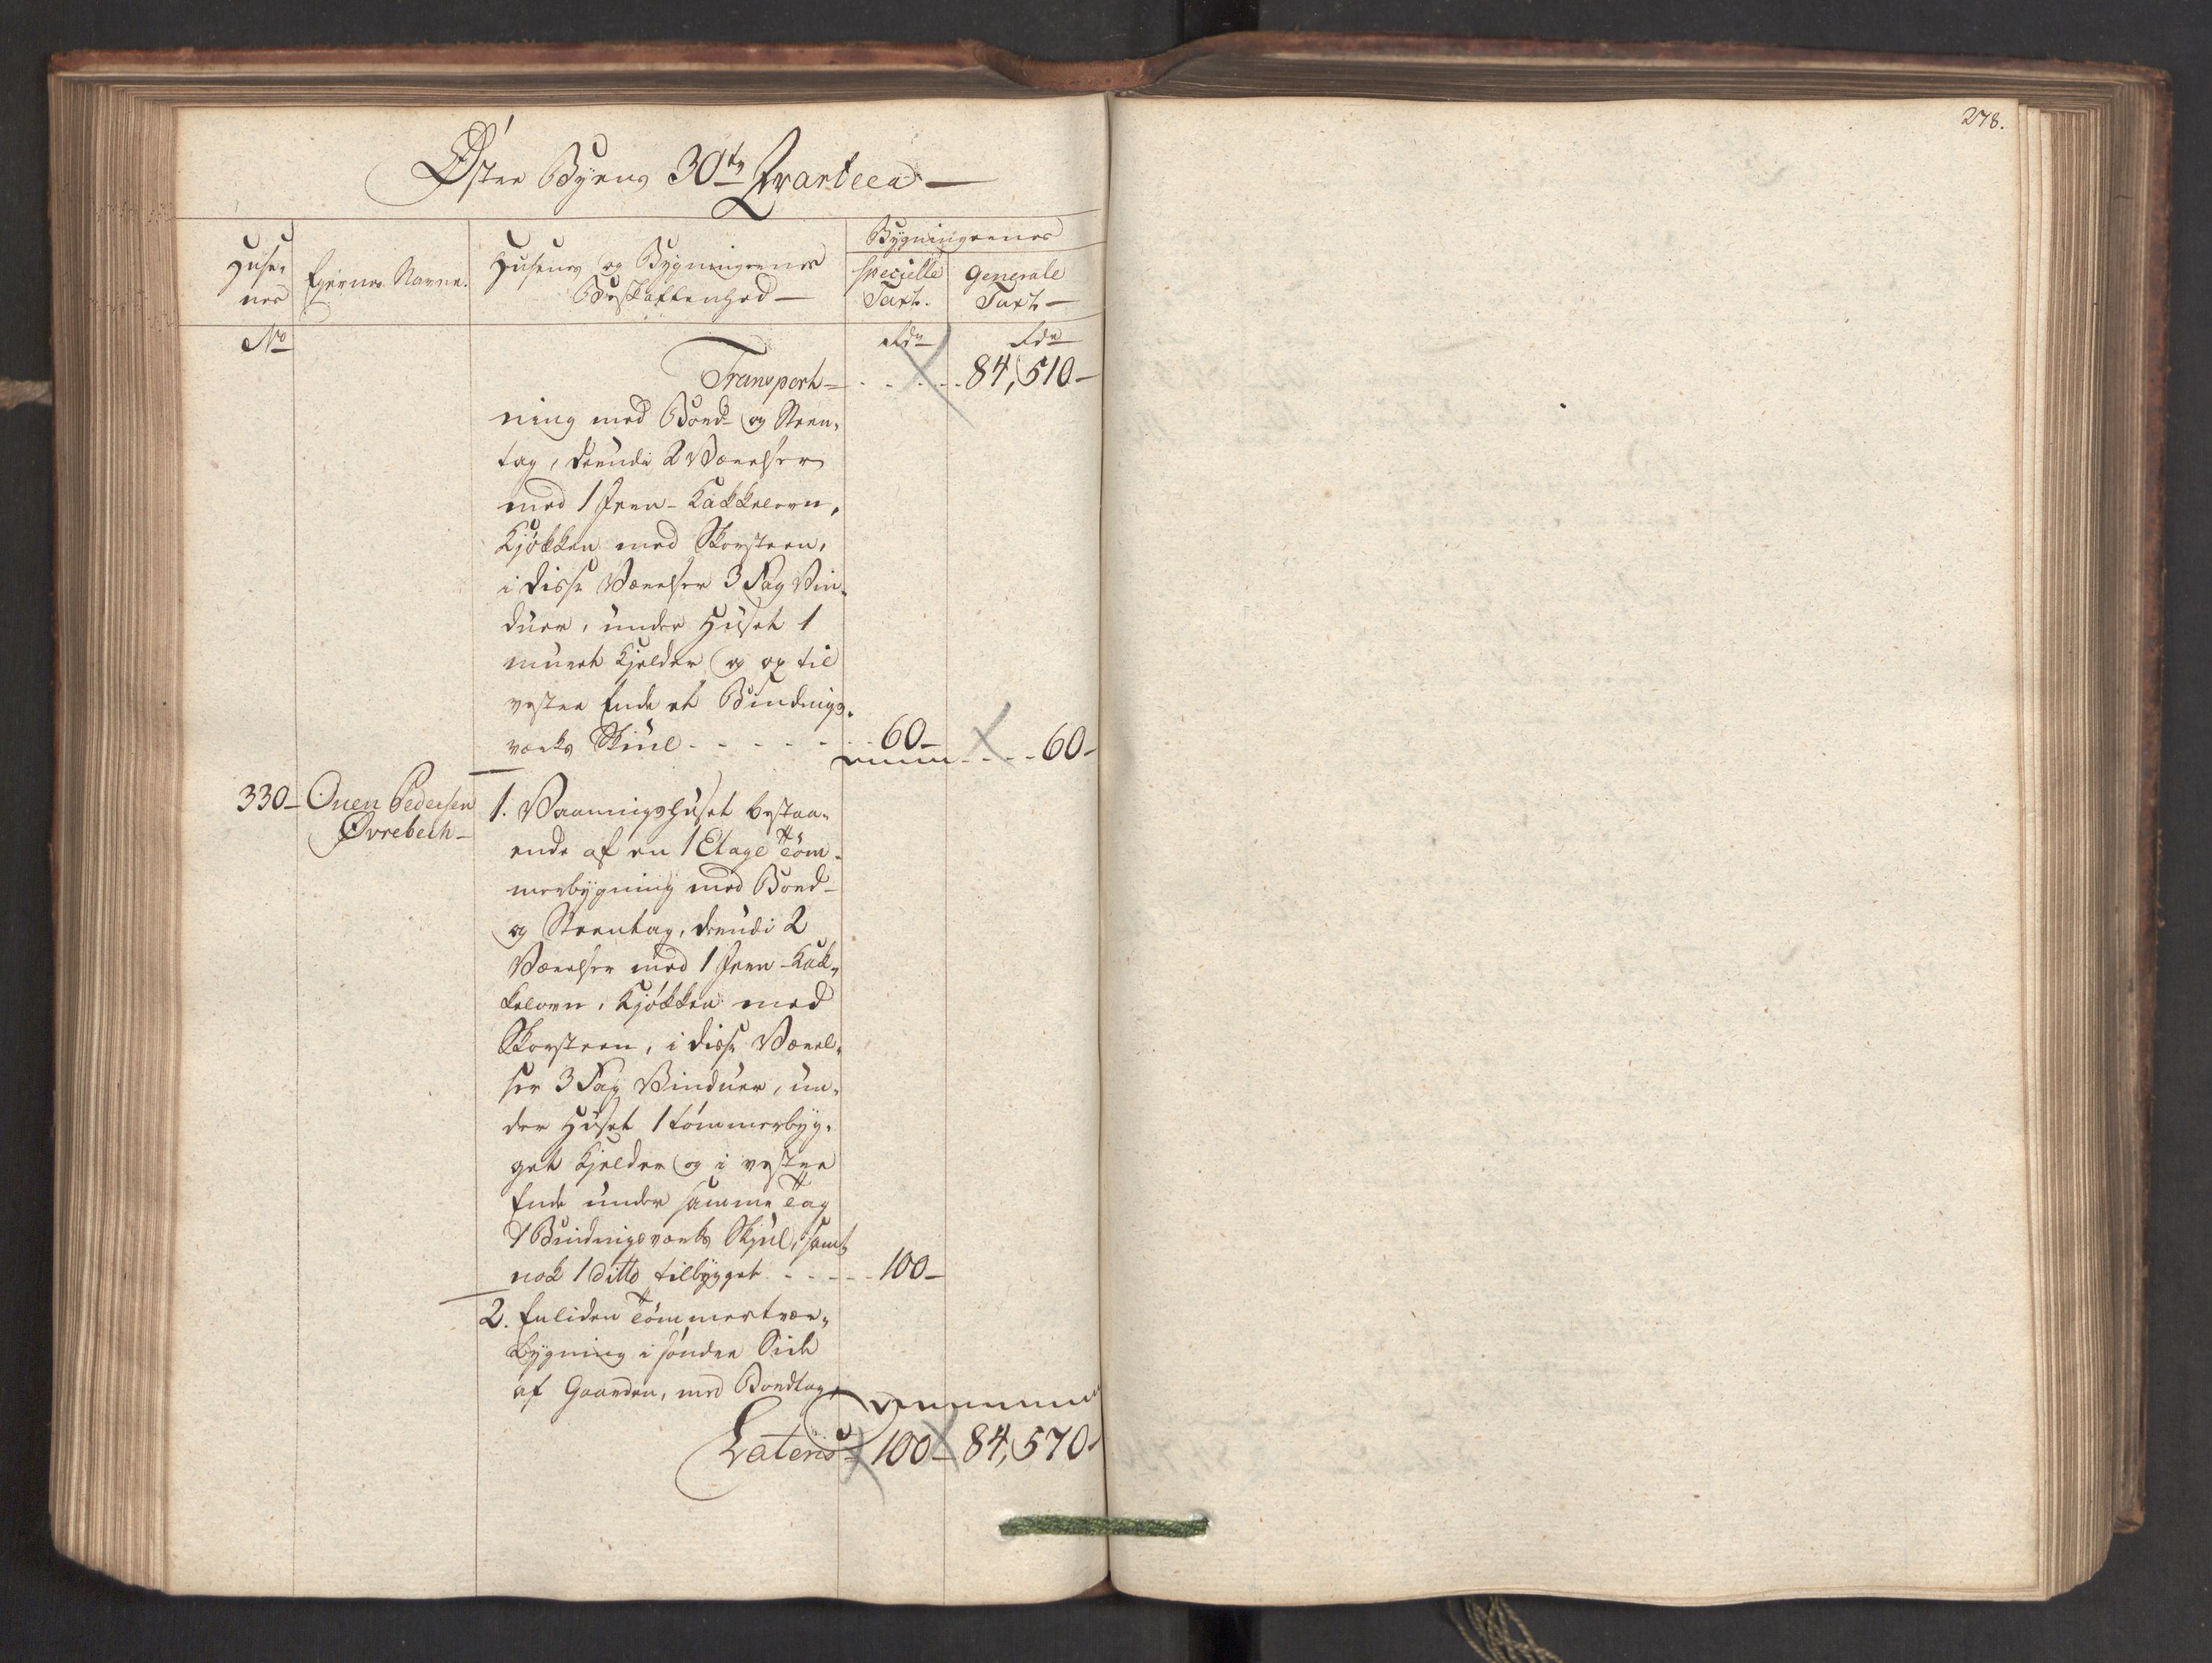 278.
Øster Byens 30te Qvarteer
Bygningernes
Huse-
nes
Ejernes Navne.
Husenes og Bygningernes
Beskaffenhed
specielle
Taxt.
Generale
Taxt
No
Rdr
Rdr
Transport 84,510
ning med Bord- og Steen-
tag, derudi 2 Værelser
med 1 Jern-Kakkelovn,
Kjøkken med Skorsteen,
i disse Værelser 3 Fag Vin-
duer, under Huset 1
muret Kjelder og op til
vestre Ende et Bindings-
værks Skiul 60 60
330 Ouen Pedersen
Øvrebech
1. Vaaningshuset bestaa-
ende af en 1 Etage Töm-
merbygning med Bord-
og Steentag, derudi 2
Værelser med 1 Jern-Kak-
kelovn, Kjøkken med
Skorsteen, i disse Værel-
ser 3 Fag Vinduer, un-
der Huset 1 tömmerbyg-
get Kjelder og i vestre
Ende under samme Tag
1 Bindingsværks Skjul, samt
nok 1 ditto tilbygget 100
2. En liden Tömmertvær-
bygning i söndre Side
af Gaarden, med Bordtag,
Lateris 100 84,570